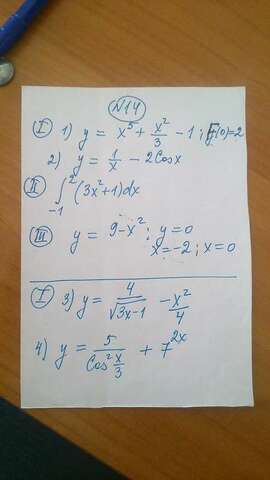 №14
I 1) y = x⁵ + x²/3 - 1; F(0)=2
2) y = 1/x - 2Cosx
II ∫₋₁² (3x²+1)dx
III y = 9-x²; y=0
x=-2; x=0
I 3) y = 4/√(3x-1) - x²/4
4) y = 5/(Cos² x/3) + 7²ˣ